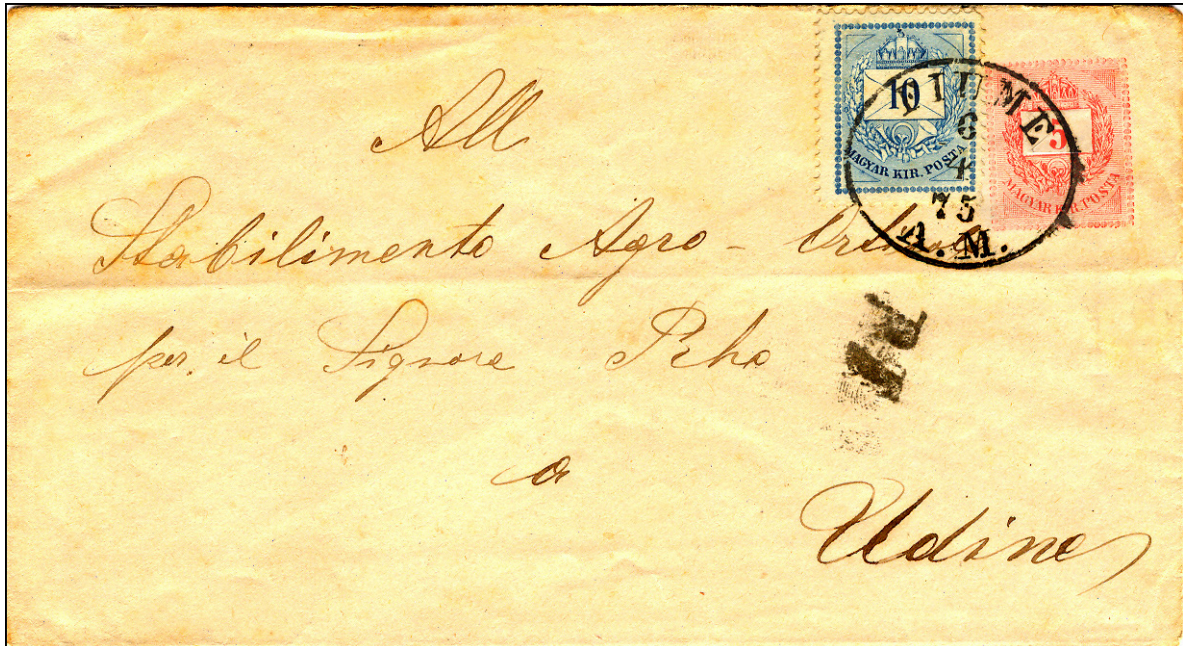 10
MAGYAR KIR. POSTA
5
MAGYAR KIR. POSTA
FIUME
6
4
75
A. M.
All
Stabilimento Agro -
per il Signore Rho
a
Udine